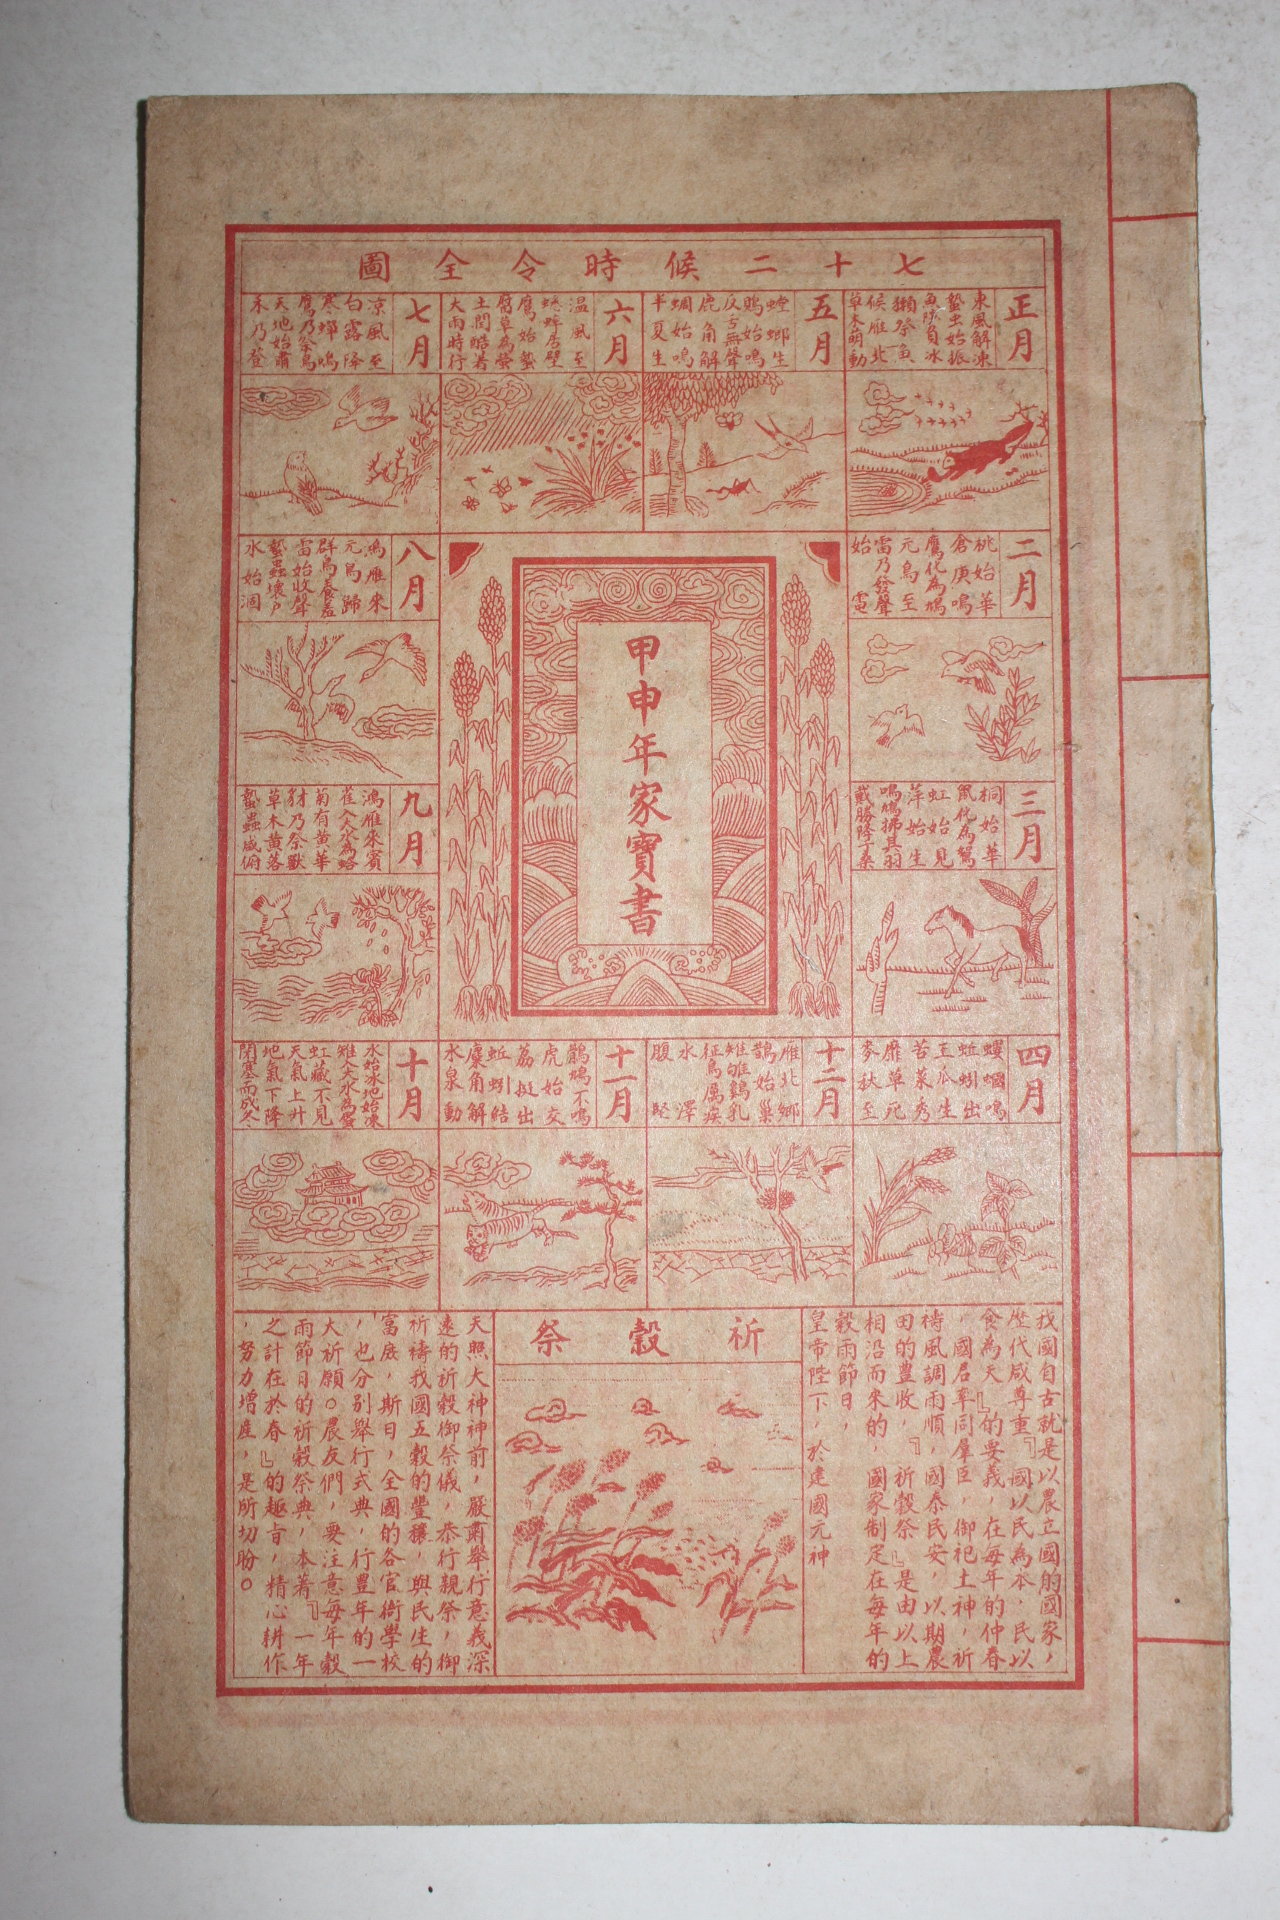 七十二候時令全圖
正月
東風解凍
蟄虫始振
魚陟負冰
獺祭魚
候雁北
草木萌動
五月
螳螂生
鵙始鳴
反舌無聲
鹿角解
蜩始鳴
半夏生
六月
温風至
蟋蟀居壁
鷹始蟄
腐草為螢
土潤暗暑
大雨時行
七月
凉風至
白露降
寒蟬鳴
鷹乃祭鳥
天地始肅
禾乃登
二月
桃始華
倉庚鳴
鷹化為鳩
元鳥至
雷乃發聲
始電
甲申年家寶書
八月
鴻雁來
元鳥歸
群鳥養羞
雷始收聲
蟄蟲壞戶
水始涸
三月
桐始華
鼠化為鴽
虹始見
萍始生
鳴鳩拂其羽
戴勝降于桑
九月
鴻雁來賓
雀入大水為蛤
菊有黄華
豺乃祭獸
草木黄落
蟄蟲咸俯
四月
螻蟈鳴
蚯蚓出
王瓜生
苦菜秀
靡草死
麥秋至
十二月
雁北鄉
鵲始巢
雉雊鷄乳
征鳥厲疾
水澤
腹堅
十一月
鶡鴠不鳴
虎始交
荔挺出
蚯蚓結
麋角解
水泉動
十月
水始冰地始凍
雉入大水為蜃
虹藏不見
天氣上升
地氣下降
閉塞而成冬
我國自古就是以農立國的國家，
歷代咸尊重『國以民為本，民以
食為天』的要義，在每年的仲春
，國君率同羣臣，御祀土神，祈
禱風調雨順，國泰民安，以期農
田的豊收，『祈穀祭』是由以上
相沿而來的，國家制定在每年的
穀雨節日，
皇帝陛下，於建國元神
祈穀祭
天照大神神前，嚴肅舉行意義深
遠的祈穀御祭儀，恭行親祭，御
祈禱我國五穀的豐穰，與民生的
富庶，斯日，全國的各官衙學校
，也分别舉行式典，行豊年的一
大祈願。農友們，要注意每年穀
雨節日的祈穀祭典，本著『一年
之計在於春』的趣旨，精心耕作
，努力增産，是所切盼。